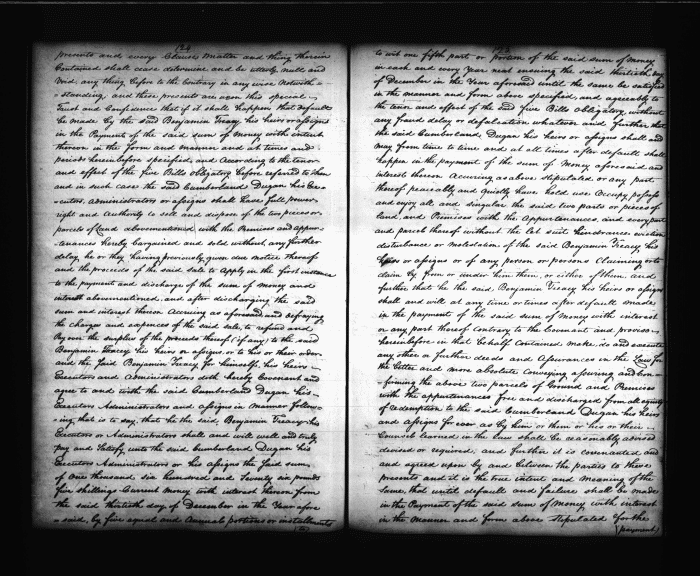 124
presents and every Clause Matter and thing therein
Contained shall cease determine and be utterly null and
Void; any thing before to the Contrary in any wise Notwith=
=standing and these presents are upon this special
Trust and Confidence that if it shall happen that default
be made by the said Benjamin Treacy his heirs or assigns
in the Payment of the said sum of Money with interest
thereon in the form and manner and at times and
periods hereinbefore specified, and According to the tenor
and effect of the five Bills obligatory before referred to then
and in such case the said Cumberland Dugan his Exe=
cutors, administrators or assigns shall have full power
right and Authority to sell and dispose of the two pieces or
parcels of Land abovementioned with the Premises and appur=
=tenances hereby bargained and sold without any further
delay, he or they having previously given due notice thereof
and the proceeds of the said sale to apply in the first instance
to the payment and discharge of the sum of money and
interest abovementioned, and after discharging the said
sum and interest thereon Accruing as aforesaid and defraying
the charges and expences of the said sale, to refund and
Pay over the surplus of the proceeds thereof (if any) to the said
Benjamin Treacy his heirs or assigns, or to his or their order
and the said Benjamin Treacy for himself, his heirs
Executors and Administrators doth hereby Covenant and
agree to and with the said Cumberland Dugan his
Executors Administrators and assigns in Manner follow=
=ing, that is to say, that he the said Benjamin Treacy his
Executors or Administrators shall and will well and truly
pay and Satisfy unto the said Cumberland Dugan his
Executors Administrators or his assigns the said sum
of one thousand six hundred and Seventy six pounds
five shillings Current money with interest thereon from
the said thirtieth day of December in the Year afore
=said, by five equal and Annual portions or installments
(to)
125
to wit one fifth part or portion of the said sum of Money
in each and every Year next ensuing the said thirtieth day
of December in the Year aforesaid until the same be satisfied
in the manner and form above specified, and agreeably to
the tenor and effect of the said five Bills Obligatory, without
any fraud delay or defalcation whatever and further that
the said Cumberland Dugan his heirs or assigns shall and
may from time to time and at all times after default shall
happen in the payment of the sum of Money aforesaid and
interest thereon Accruing as above stipulated or any part
thereof peaceably and quietly have hold use Occupy possess
and enjoy all and singular the said two parts or pieces of
land, and Premises with the Appurtenances, and every part
and parcel thereof without the let suit hindrance eviction
disturbance or Molestation of the said Benjamin Treacy, his
heirs or assigns or of any person or persons Claiming or to
claim by from or under him them, or either of them and
further that he the said Benjamin Treacy his heirs or assigns
shall and will at any time or times after default made
in the payment of the said sum of Money with interest
or any part thereof contrary to the Covenant and proviso
hereinbefore in that behalf contained make, do and execute
any other or further deeds and Assurances in the Law for
the better and more absolute conveying assuring and Con=
=firming the above two parcels of Ground and Premises
with the appurtenances free and discharged from all equity
of redemption to the said Cumberland Dugan his heirs
and assigns for ever as by him or them or his or their
Council learned in the Law shall be reasonably advised
devised or required; and further it is covenanted and
and agreed upon by and between the parties to these
presents and it is the true intent and meaning of the
same, that until default and failure shall be made
in the Payment of the said sum of Money with interest
in the Manner and form above stipulated for the
(payment)